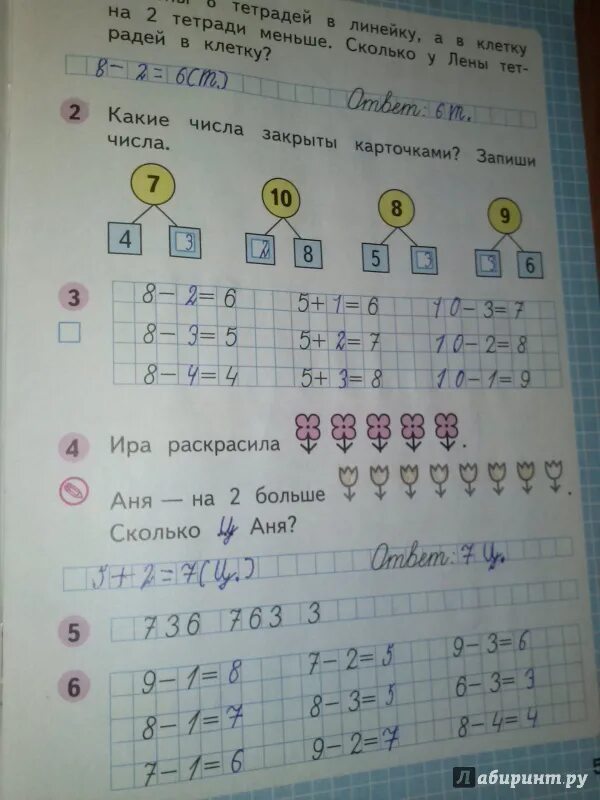 6 тетрадей в линейку, а в клетку
на 2 тетради меньше. Сколько у Лены тет-
радей в клетку?
8 - 2 = 6 (т.)
Ответ: 6 т.
2 Какие числа закрыты карточками? Запиши
числа.
7 10 8 9
4 3 2 8 5 3 3 6
3 8 - 2 = 6 5 + 1 = 6 10 - 3 = 7
8 - 3 = 5 5 + 2 = 7 10 - 2 = 8
8 - 4 = 4 5 + 3 = 8 10 - 1 = 9
4 Ира раскрасила .
Аня — на 2 больше .
Сколько ц Аня?
5 + 2 = 7 (ц.) Ответ: 7 ц.
5 7 3 6 7 6 3 3
6 9 - 1 = 8 7 - 2 = 5 9 - 3 = 6
8 - 1 = 7 8 - 3 = 5 6 - 3 = 3
7 - 1 = 6 9 - 2 = 7 8 - 4 = 4
5
Лабиринт.ру